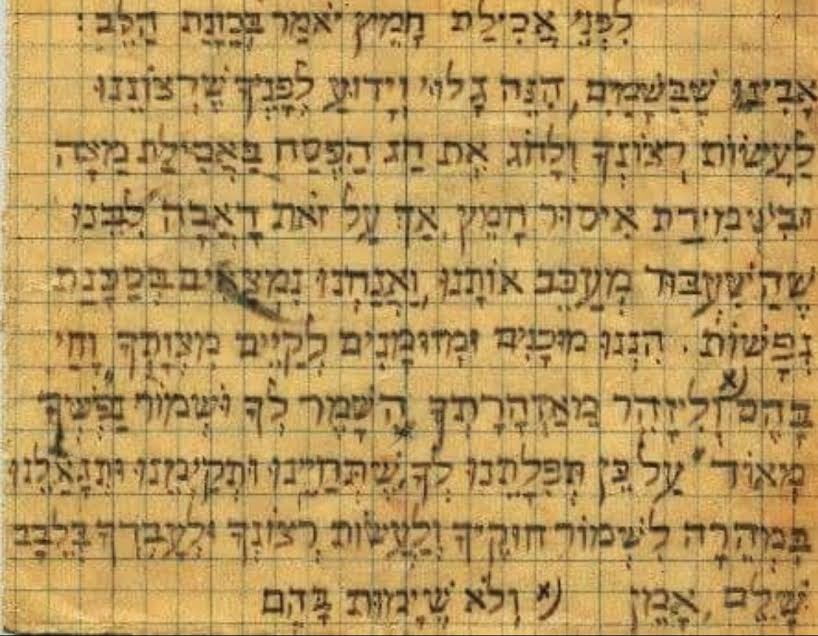 לִפְנֵי אֲכִילַת חָמֵץ יֹאמַר בְּכַוָּנַת הַלֵּב :
אָבִינוּ שֶׁבַּשָּׁמַיִם, הִנֵּה גָּלוּי וְיָדוּעַ לְפָנֶיךָ שֶׁרְצוֹנֵנוּ
לַעֲשׂוֹת רְצוֹנְךָ וְלָחֹג אֶת חַג הַפֶּסַח בַּאֲכִילַת מַצָּה
וּבִשְׁמִירַת אִיסוּר חָמֵץ, אַךְ עַל זֹאת דָּאֲבָה לִבֵּנוּ
שֶׁהַשִּׁעְבּוּד מְעַכֵּב אוֹתָנוּ, וַאֲנַחְנוּ נִמְצָאִים בְּסַכָּנַת
נְפָשׁוֹת. הִנְנוּ מוּכָנִים וּמְזוּמָּנִים לְקַיֵּים מִצְוָתְךָ וָחַי
בָּהֶם x) וְלִיזָּהֵר מֵאַזְהָרָתְךָ הִשָּׁמֶר לְךָ וּשְׁמוֹר נַפְשְׁךָ
מְאוֹד עַל כֵּן תְּפִלָּתֵנוּ לְךָ, שֶׁתְּחַיֵּינוּ וּתְקַיְּימֵנוּ וְתִגְאָלֵנוּ
בִּמְהֵרָה לִשְׁמוֹר חוּקֶּיךָ וְלַעֲשׂוֹת רְצוֹנְךָ וּלְעָבְדְּךָ בְּלֵבָב
שָׁלֵם, אָמֵן x) וְלֹא שֶׁיָּמוּת בָּהֶם